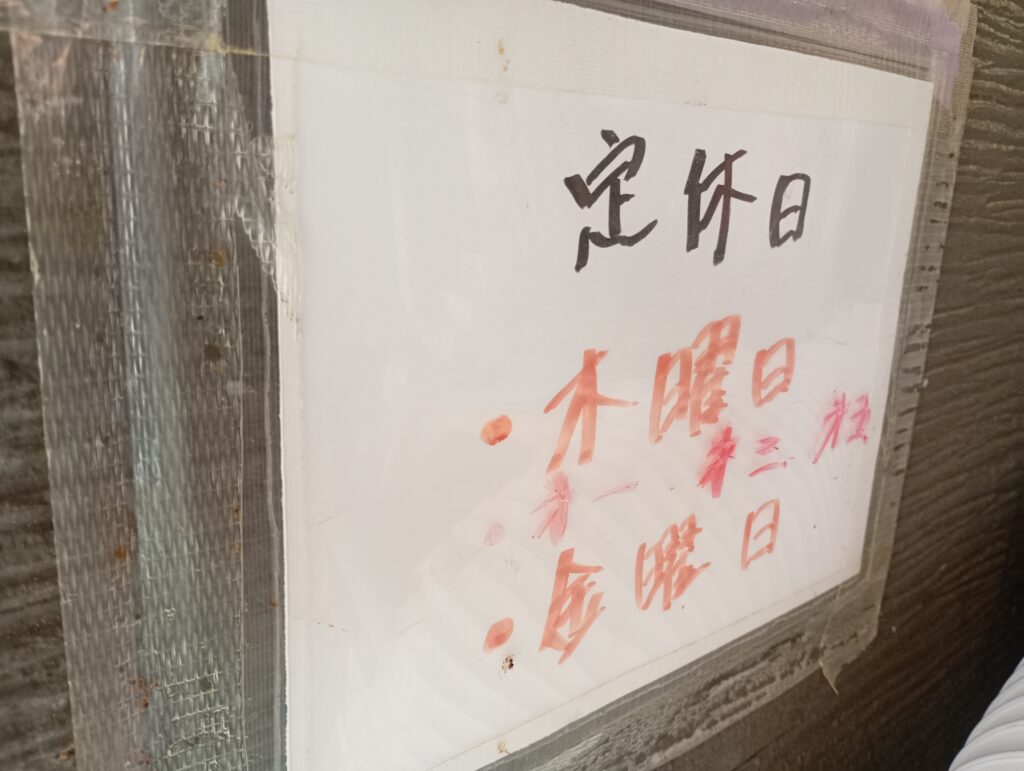 定休日
・木曜日
・第一 第三 第五
・金曜日